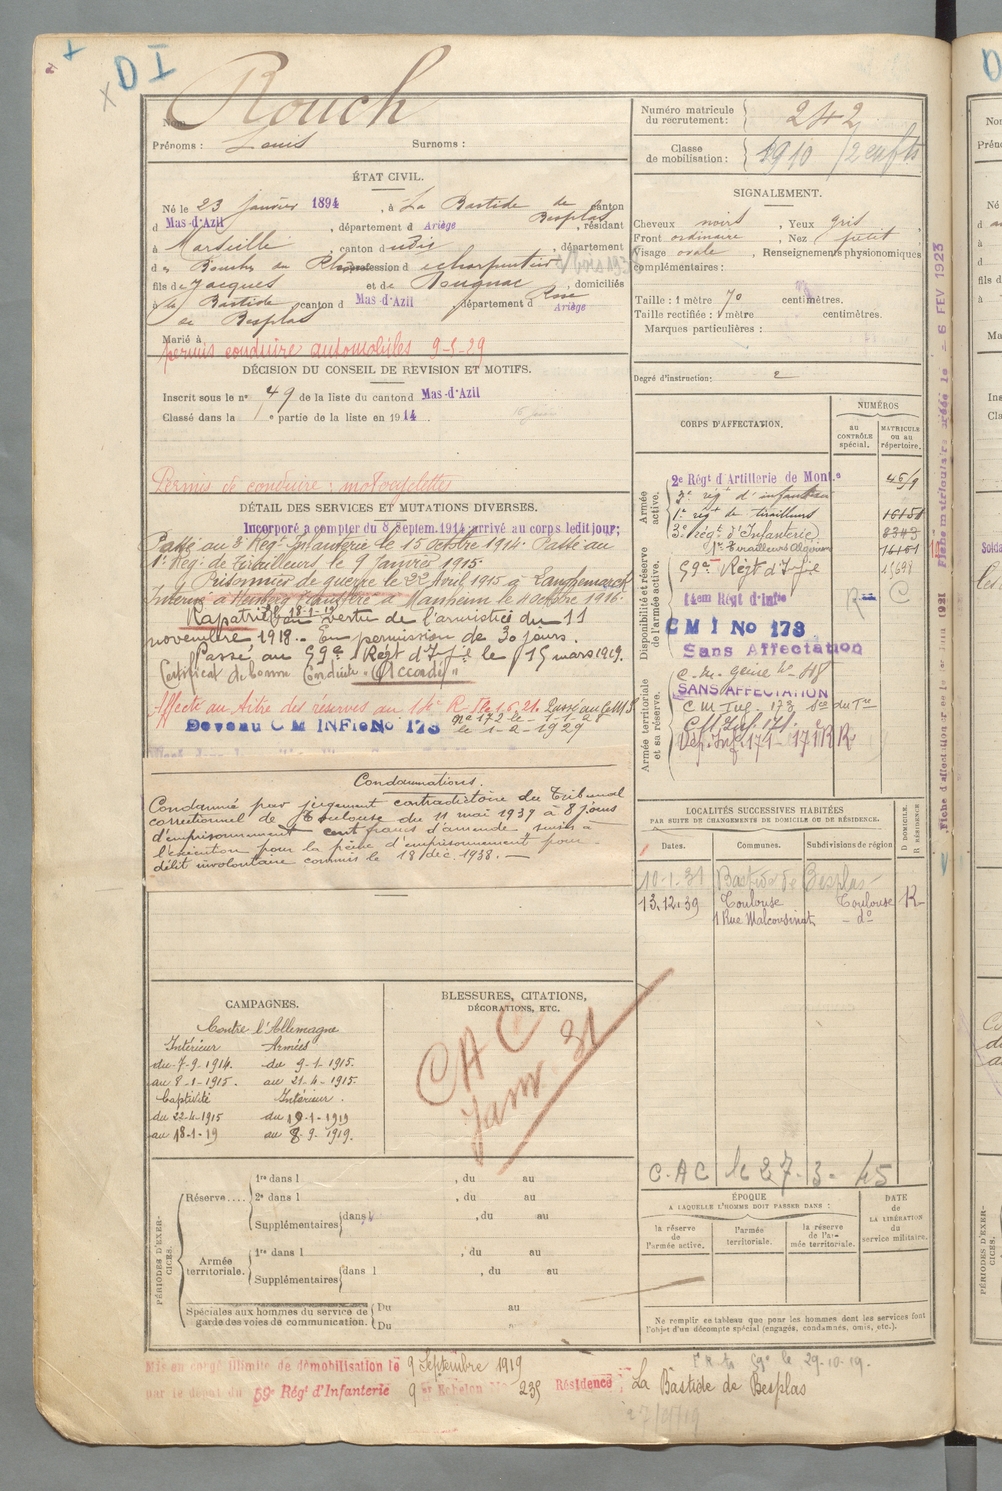 D I
Rouch
Nom
Prénoms : Louis Surnoms :
ÉTAT CIVIL.
Né le 23 janvier 1894, à La Bastide de Besplas, canton
d Mas-d'Azil, département d Ariège, résidant
à Marseille, canton d udis, département
des Bouches du Rhône profession d charpentier
fils de Jacques et de Rougnac Rose, domiciliés
à La Bastide de Besplas canton d Mas-d'Azil département d Ariège
Marié à
permis conduire automobiles 9-5-29
DÉCISION DU CONSEIL DE REVISION ET MOTIFS.
Inscrit sous le no 49 de la liste du canton d Mas-d'Azil
Classé dans la e partie de la liste en 1914.
Permis de conduire : motocyclettes
DÉTAIL DES SERVICES ET MUTATIONS DIVERSES.
Incorporé a compter du 8 Septem. 1914 arrivé au corps ledit jour;
Passé au 3e Régt Infanterie le 15 octobre 1914. Passé au
1er Régt de Tirailleurs le 9 Janvier 1915.
Prisonnier de guerre le 22 Avril 1915 à Langhemarck
Interné à Transféré à Manheim le 4 octobre 1916.
Rapatrié le 18-1-19 en vertu de l'armistice du 11
novembre 1918. En permission de 30 jours.
Passé au 59e Régt d'Infie le 15 mars 1919.
Certificat de bonne Conduite "Accordé"
Affecté au titre des réserves au 14e R. I. le 1.6.21. Passé au C M I
no 172 le 1-1-28
Devenu C M INFie No 173 le 1-2-1929
Condamnations.
Condamné par jugement contradictoire du Tribunal
correctionnel de Toulouse du 11 mai 1939 à 8 jours
d'emprisonnement cent francs d'amende "sursis à
l'exécution pour la peine d'emprisonnement pour
délit involontaire commis le 18 déc. 1938.
CAMPAGNES.
Contre l'Allemagne
Intérieur Armées
du 7-9-1914. du 9-1-1915.
au 8-1-1915. au 21-4-1915.
Captivité Intérieur.
du 22-4-1915 du 19-1-1919
au 18-1-19 au 8-9-1919.
BLESSURES, CITATIONS,
DÉCORATIONS, ETC.
CAC
Janv. 31
PÉRIODES D'EXERCICES.
Réserve....
1re dans l , du au
2e dans l , du au
Supplémentaires dans l , du au
Armée territoriale.
1re dans l , du au
Supplémentaires dans l , du au
Spéciales aux hommes du service de garde des voies de communication.
Du au
Du
Numéro matricule du recrutement : 242
Classe de mobilisation : 1910 / 2 enfts
SIGNALEMENT.
Cheveux noirs, Yeux gris
Front ordinaire, Nez petit
Visage ovale, Renseignements physionomiques
complémentaires :
Taille : 1 mètre 70 centimètres.
Taille rectifiée : 1 mètre centimètres.
Marques particulières :
Degré d'instruction : 2
CORPS D'AFFECTATION.
NUMÉROS
au CONTRÔLE spécial.
MATRICULE ou au répertoire.
Armée active.
2e Régt d'Artillerie de Mont.e
3e régt d'infanterie
1er régt de tirailleurs 16151
3e Régt d'Infanterie 8343
1er Tirailleurs Algérien 16151
59e Régt d'Infie
Disponibilité et réserve de l'armée active.
14em Régt d'Infie
C M I No 173
Sans Affectation
Armée territoriale et sa réserve.
SANS AFFECTATION
LOCALITÉS SUCCESSIVES HABITÉES
PAR SUITE DE CHANGEMENTS DE DOMICILE OU DE RÉSIDENCE.
D DOMICILE. R RÉSIDENCE.
Dates. Communes. Subdivisions de région
10-1-31 Bastide de Besplas
13.12.39 Toulouse Toulouse R
1 Rue Malcousinat do
C.A.C le 27-3-45
ÉPOQUE
A LAQUELLE L'HOMME DOIT PASSER DANS :
la réserve de l'armée active.
l'armée territoriale.
la réserve de l'armée territoriale.
DATE de LA LIBÉRATION du service militaire.
Ne remplir ce tableau que pour les hommes dont les services font
l'objet d'un décompte spécial (engagés, condamnés, omis, etc.).
Mis en congé illimité de démobilisation le 9 Septembre 1919
par le dépôt du 59e Régt d'Infanterie 9er Echelon No 235 Résidence : La Bastide de Besplas
59e le 29-10-19.
Fiche matriculaire créée le 6 FEV 1923